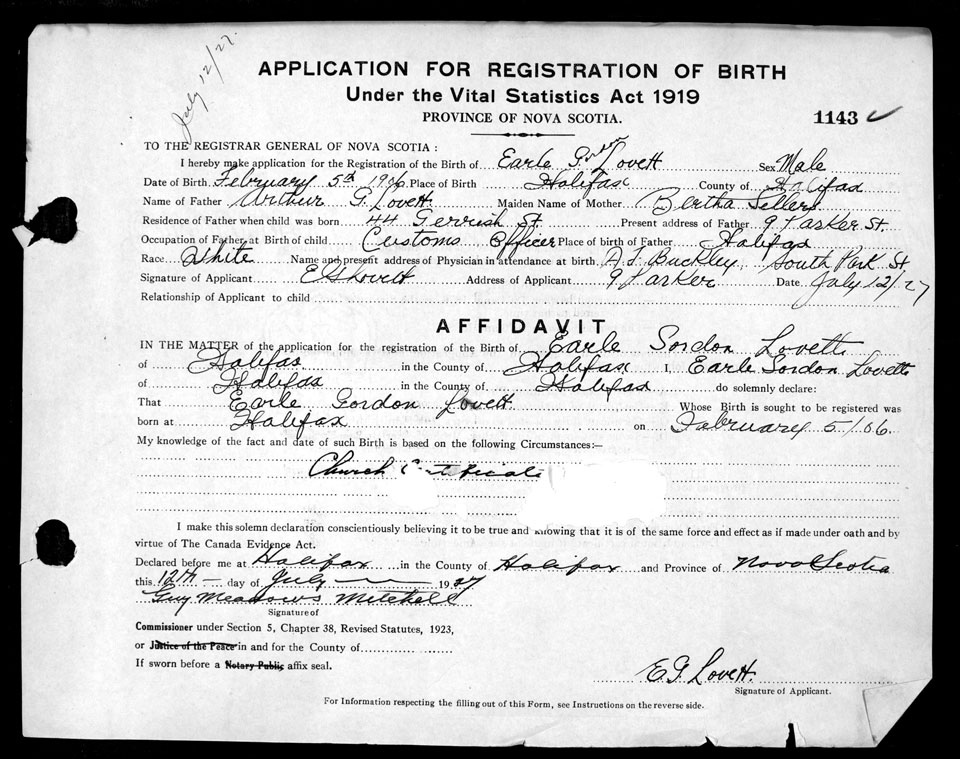 July 12/27.
APPLICATION FOR REGISTRATION OF BIRTH
Under the Vital Statistics Act 1919
PROVINCE OF NOVA SCOTIA.
1143
TO THE REGISTRAR GENERAL OF NOVA SCOTIA:
I hereby make application for the Registration of the Birth of Earle Gordon Lovett Sex Male
Date of Birth February 5th 1906 Place of Birth Halifax County of Halifax
Name of Father Arthur G. Lovett Maiden Name of Mother Bertha Sellers
Residence of Father when child was born 44 Gerrish St. Present address of Father 9 Parker St.
Occupation of Father at Birth of child Customs Officer Place of birth of Father Halifax
Race White Name and present address of Physician in attendance at birth Buckley South Park St.
Signature of Applicant E G Lovett Address of Applicant 9 Parker Date July 12/27
Relationship of Applicant to child
AFFIDAVIT
IN THE MATTER of the application for the registration of the Birth of Earle Gordon Lovett
of Halifax in the County of Halifax I, Earle Gordon Lovett
of Halifax in the County of Halifax do solemnly declare:
That Earle Gordon Lovett Whose Birth is sought to be registered was
born at Halifax on February 5/06.
My knowledge of the fact and date of such Birth is based on the following Circumstances:—
Church Certificate
I make this solemn declaration conscientiously believing it to be true and knowing that it is of the same force and effect as if made under oath and by
virtue of The Canada Evidence Act.
Declared before me at Halifax in the County of Halifax and Province of Nova Scotia
this 12th day of July 1927
Guy Meadows Mitchell
Signature of
Commissioner under Section 5, Chapter 38, Revised Statutes, 1923,
or Justice of the Peace in and for the County of
If sworn before a Notary Public affix seal.
E. G. Lovett.
Signature of Applicant.
For Information respecting the filling out of this Form, see Instructions on the reverse side.